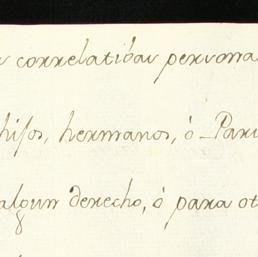 correlatibas persona
hijos, hermanos, ó Pari
algun derecho, ó para ot